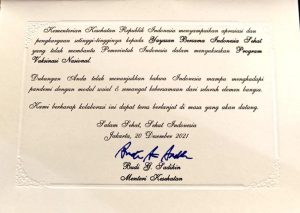 Kementerian Kesehatan Republik Indonesia menyampaikan apresiasi dan
penghargaan setinggi-tingginya kepada Yayasan Bersama Indonesia Sehat
yang telah membantu Pemerintah Indonesia dalam menyukseskan Program
Vaksinasi Nasional.
Dukungan Anda telah menunjukkan bahwa Indonesia mampu menghadapi
pandemi dengan modal sosial & semangat kebersamaan dari seluruh elemen bangsa.
Kami berharap kolaborasi ini dapat terus berlanjut di masa yang akan datang.
Salam Sehat, Sehat Indonesia
Jakarta, 20 Desember 2021
Budi G. Sadikin
Menteri Kesehatan